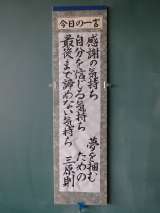 今日の一言
夢を掴む
ための
感謝の気持ち
自分を信じる気持ち
最後まで諦めない気持ち
三原則